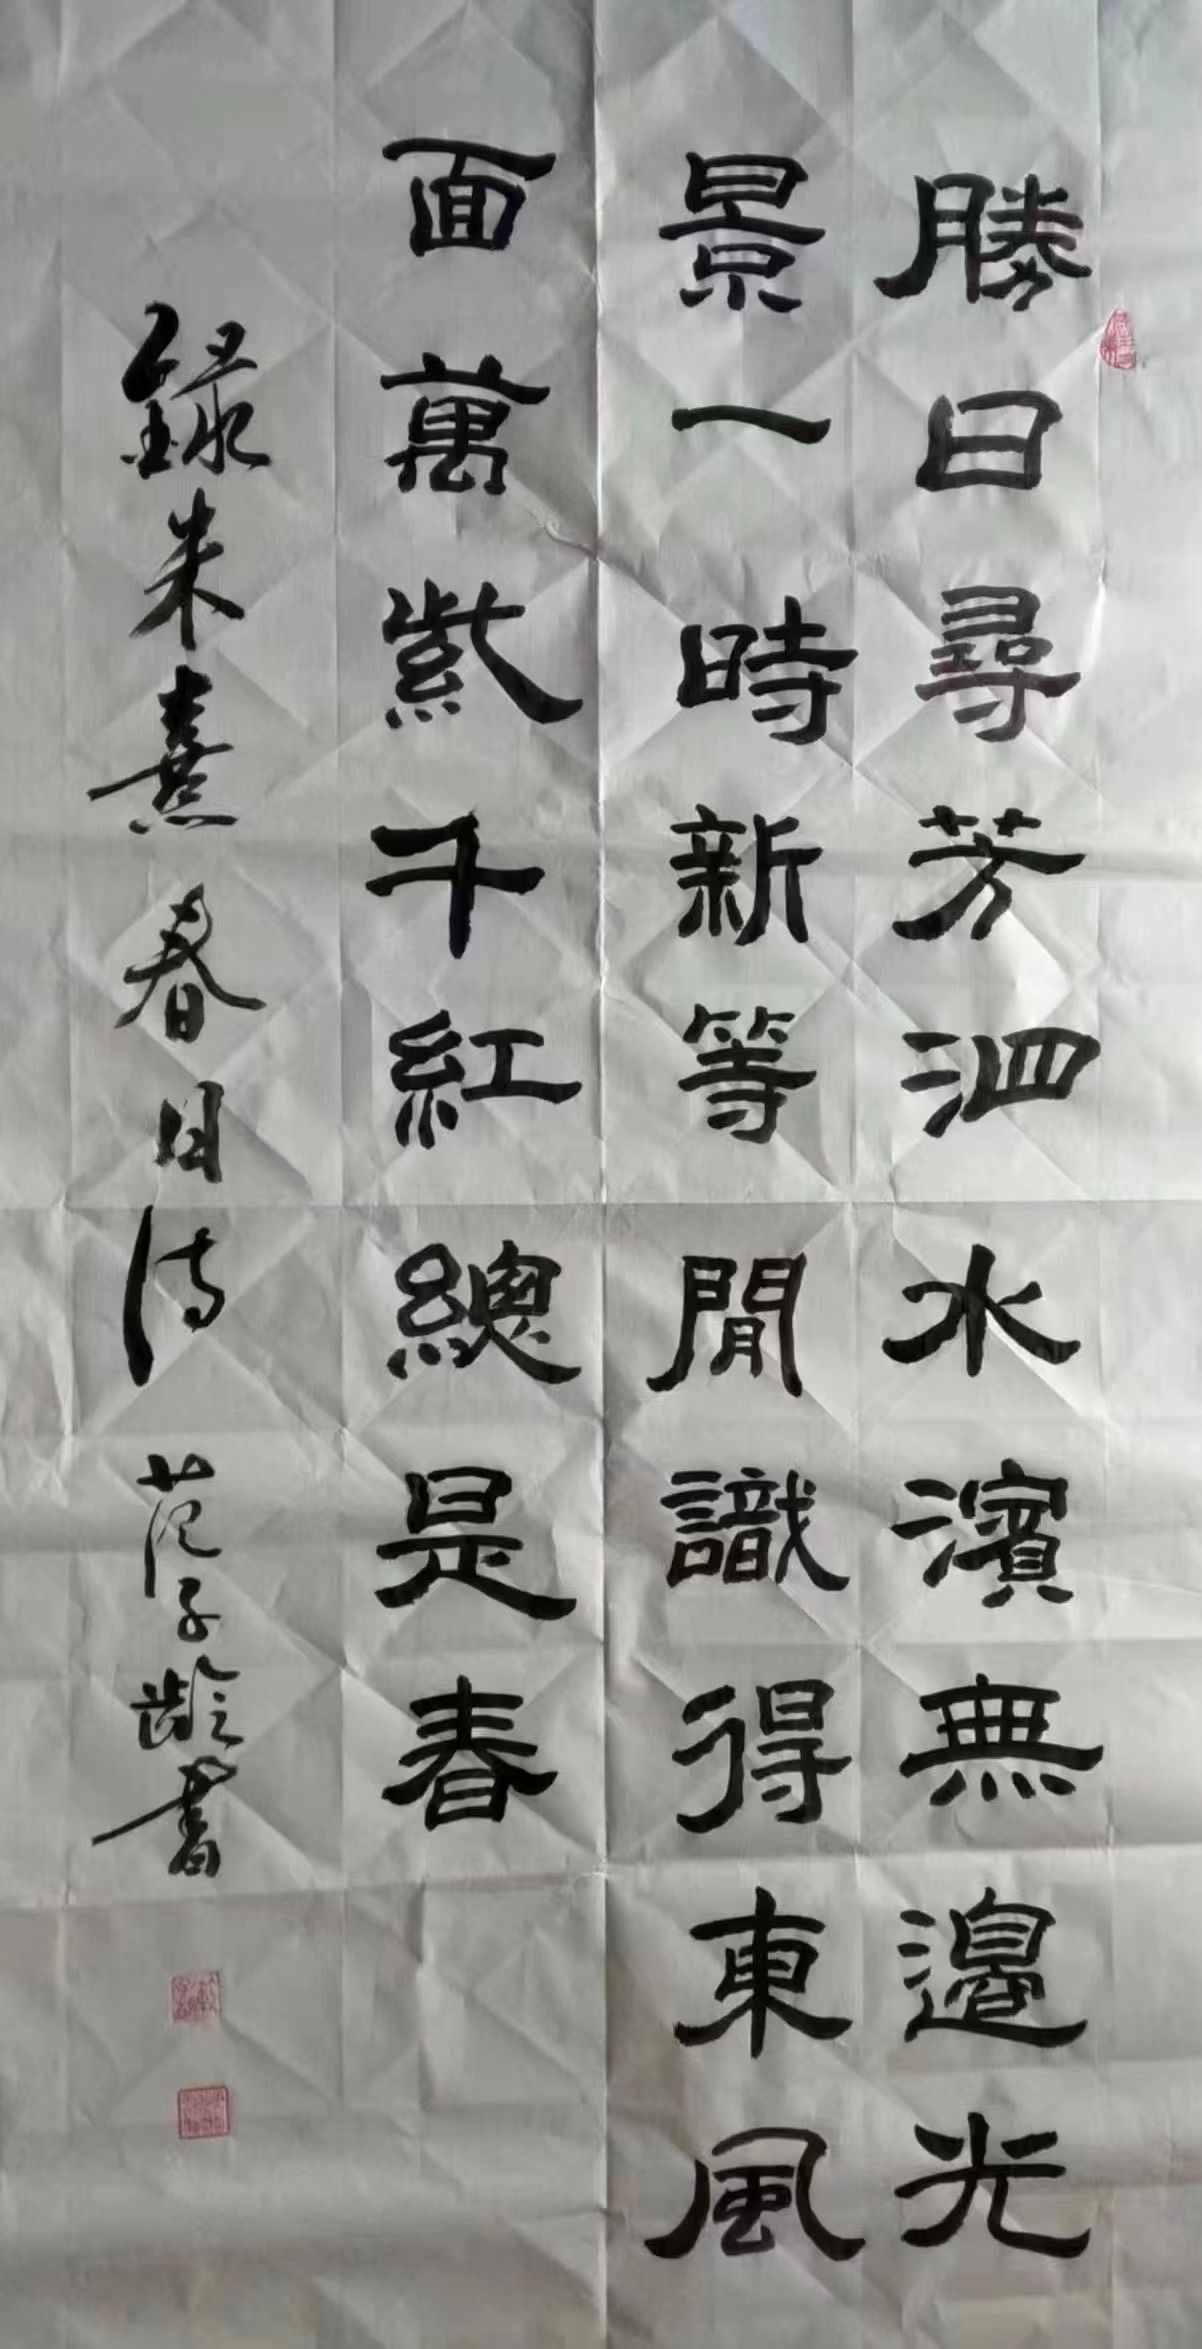 勝日尋芳泗水濱無邊光
景一時新等閒識得東風
面萬紫千紅總是春
錄朱熹春日詩 范子齡書